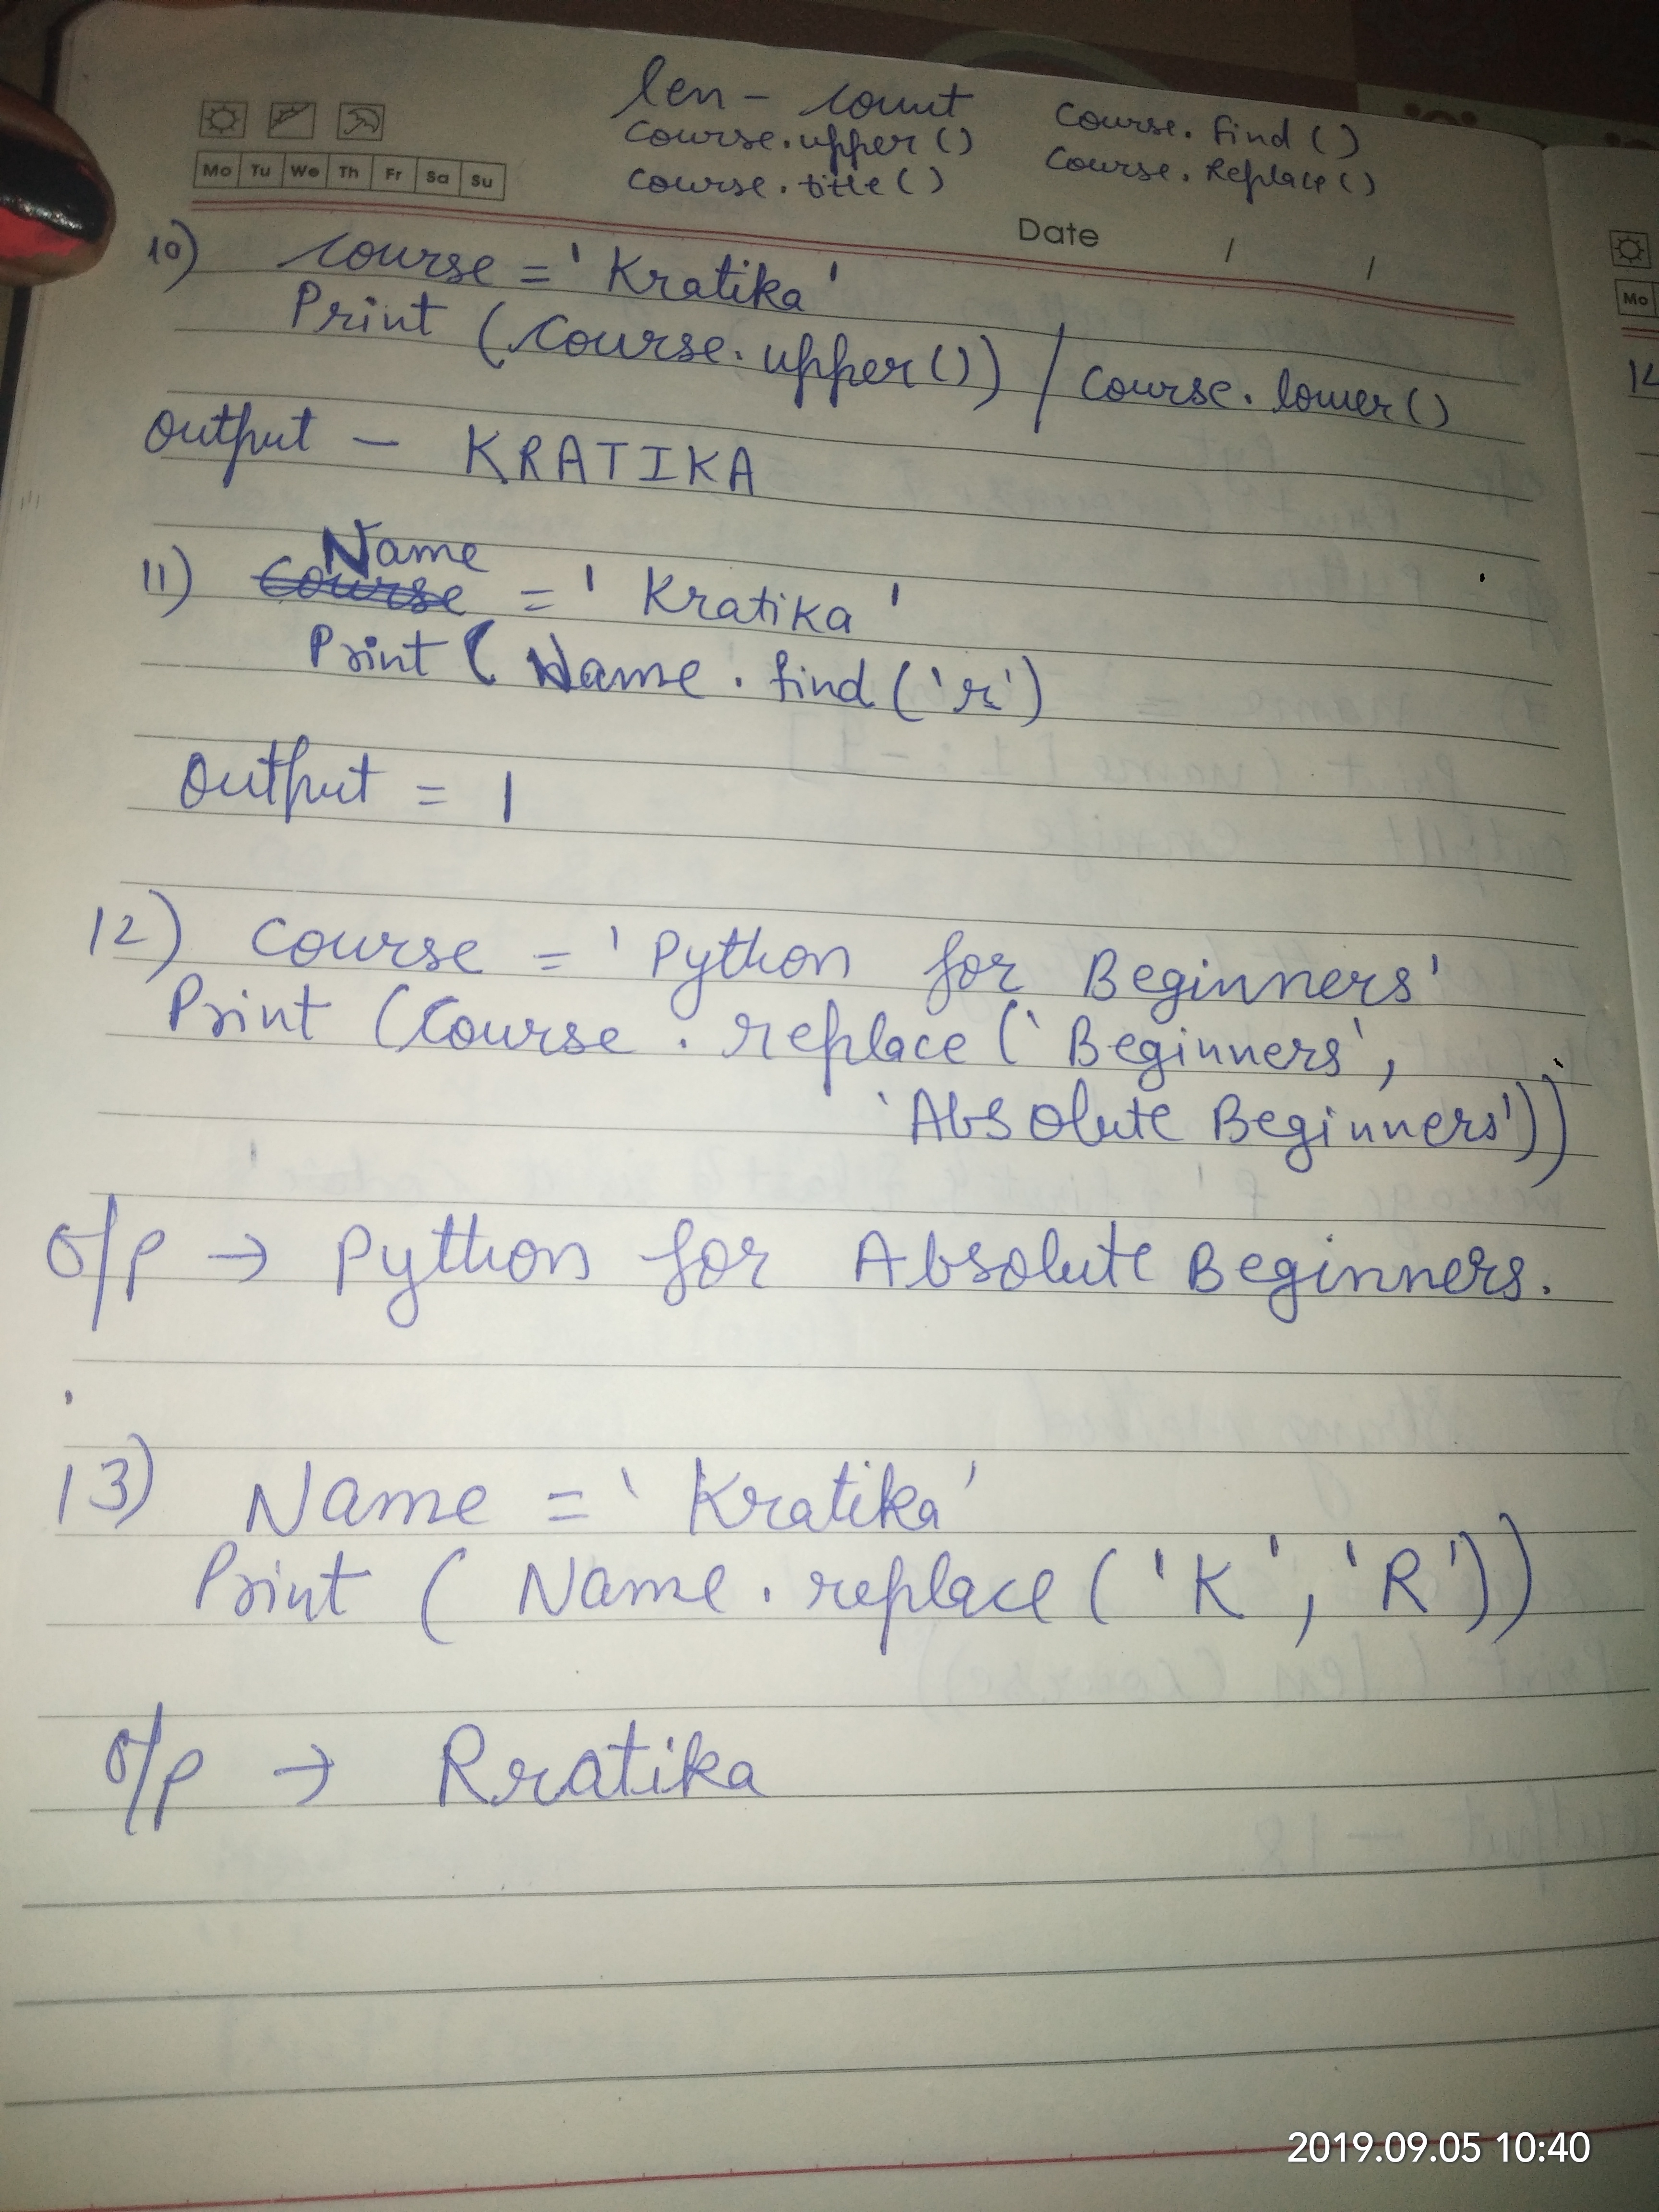 len - count
Course.upper()
Course.title()
Course. find()
Course. Replace()
Mo Tu We Th Fr Sa Su
Date / /
10) Course = 'Kratika'
Print (Course.upper()) / Course.lower()
Output - KRATIKA
Name
11) Course = 'Kratika'
Print ( Name . find ('r')
Output = 1
12) Course = 'Python for Beginners'
Print (Course . replace ('Beginners',
'Absolute Beginners'))
o/p → Python for Absolute Beginners.
13) Name = 'Kratika'
Print ( Name . replace ('K', 'R'))
o/p → Rratika
Mo
2019.09.05 10:40